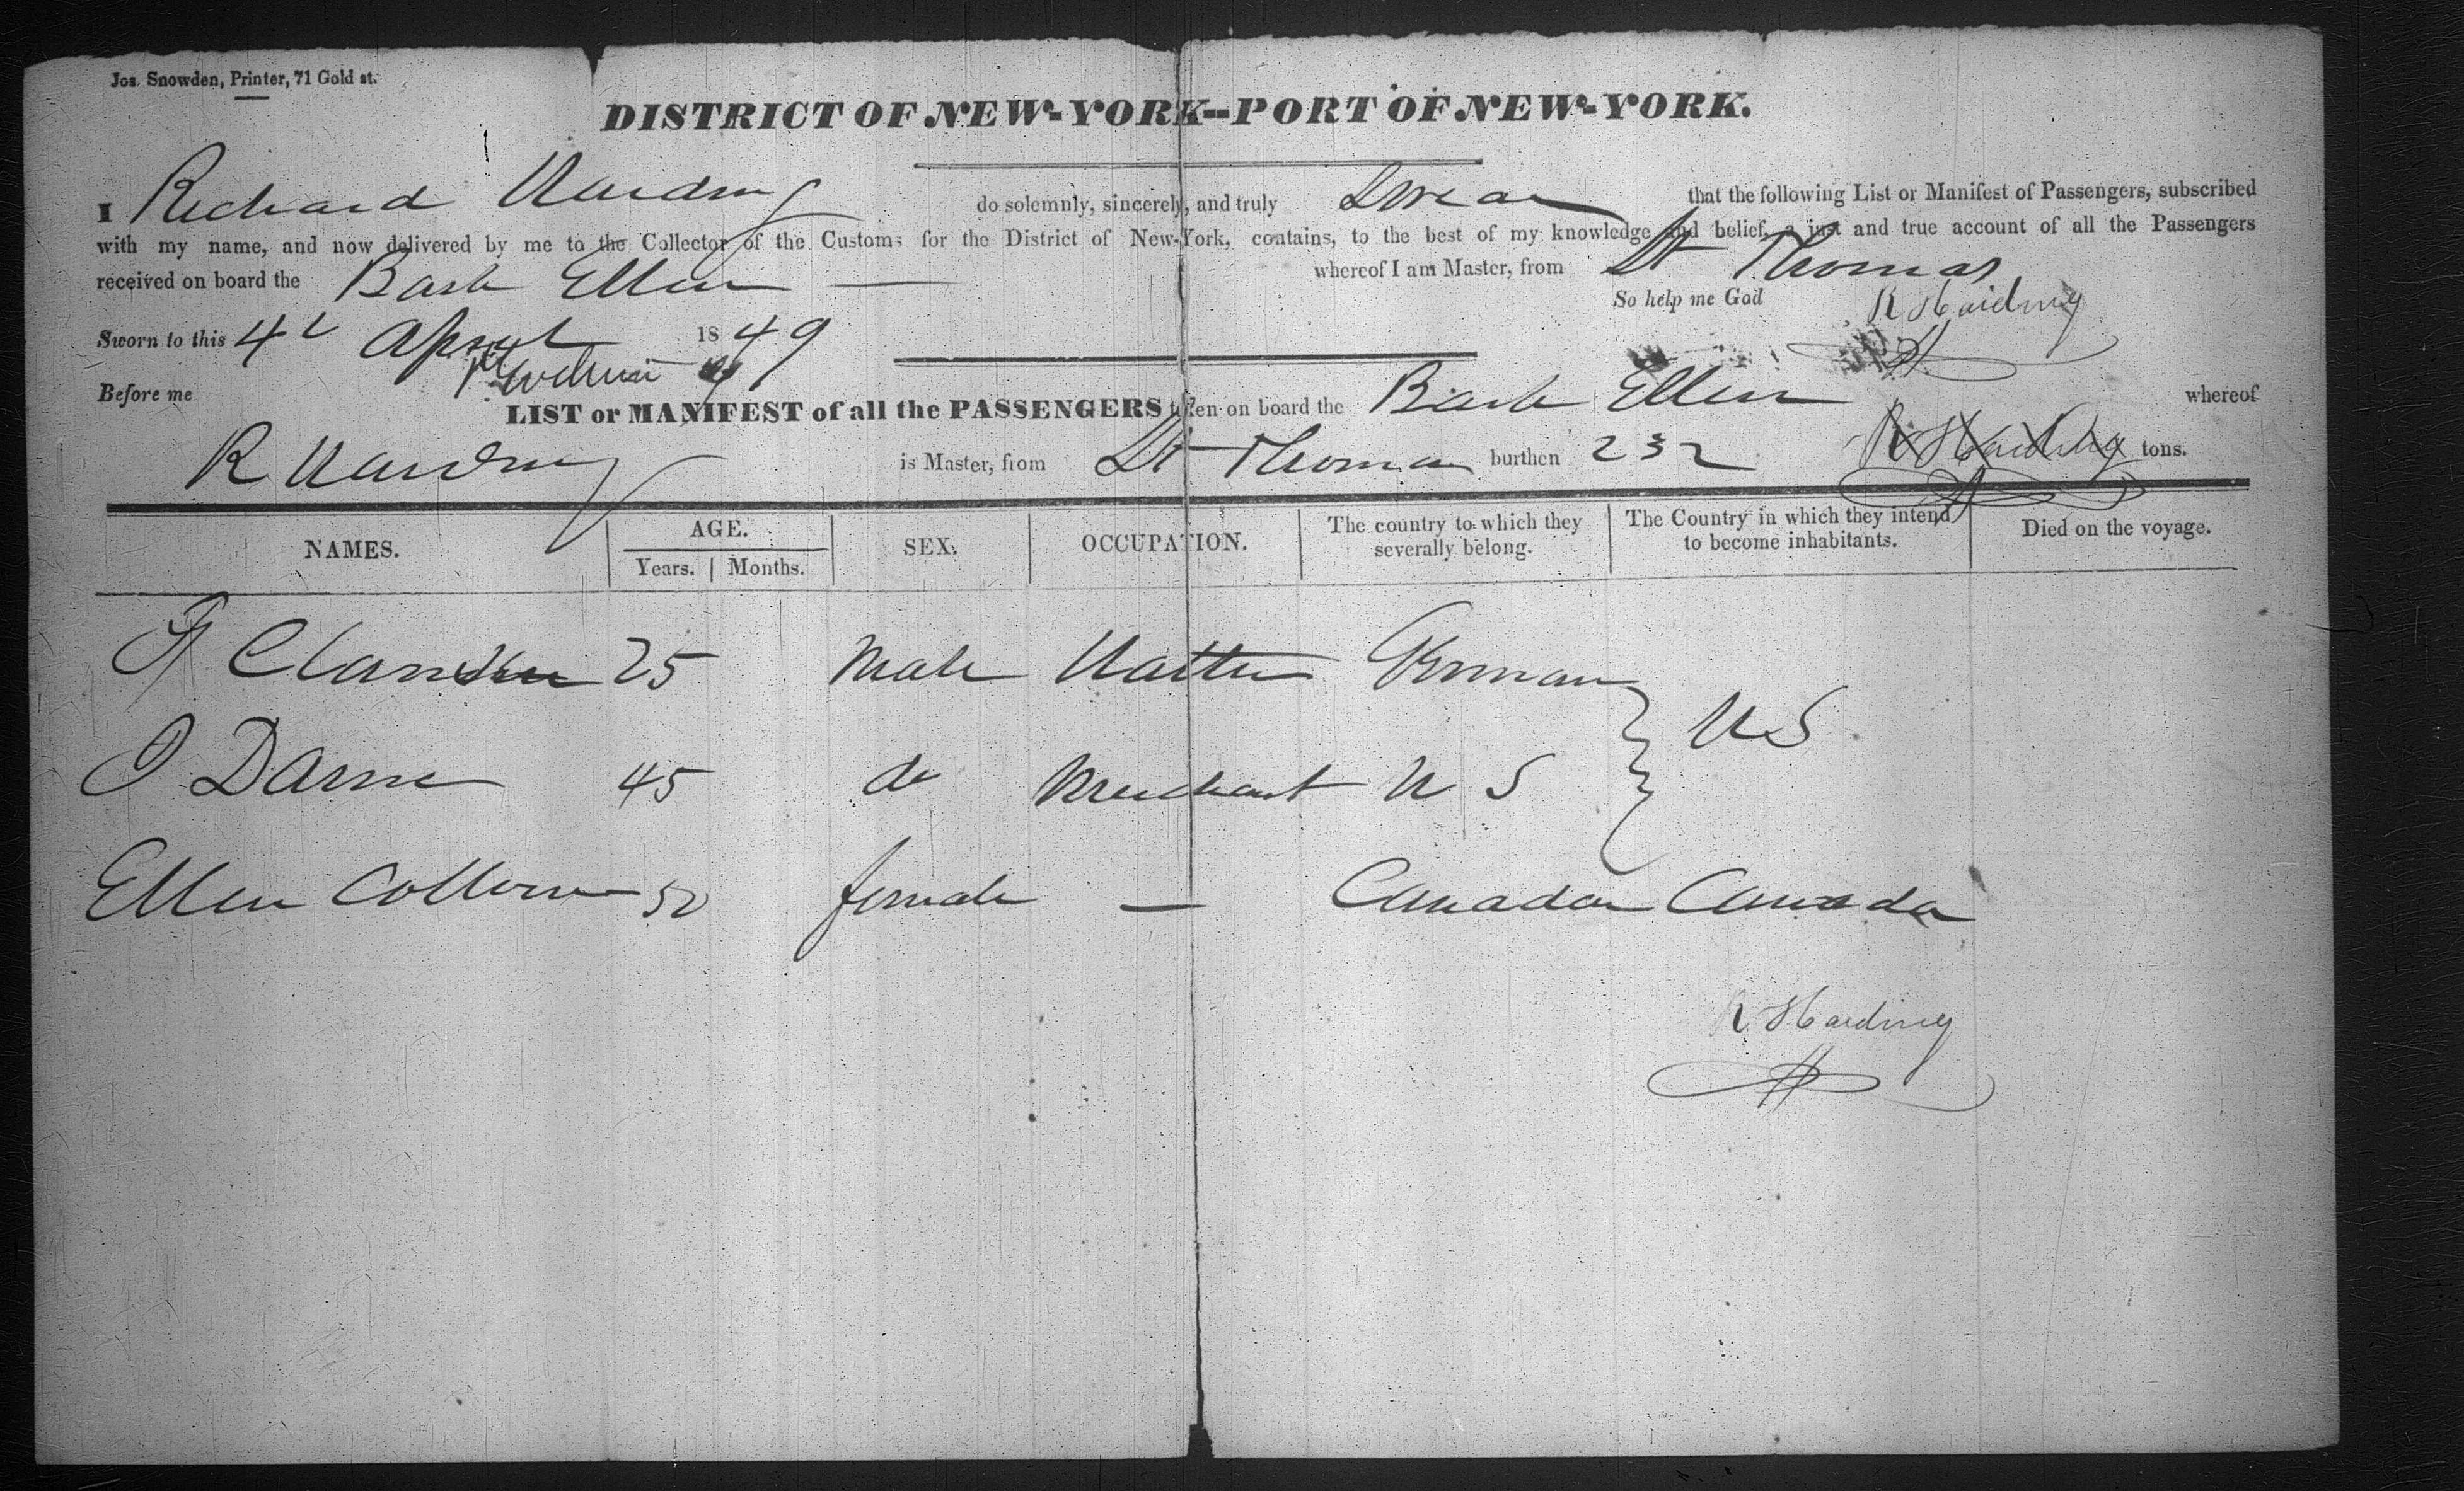 Jos. Snowden, Printer, 71 Gold st.
DISTRICT OF NEW-YORK--PORT OF NEW-YORK.
I Richard Harding do solemnly, sincerely, and truly Swear that the following List or Manifest of Passengers, subscribed
with my name, and now delivered by me to the Collector of the Customs for the District of New-York, contains, to the best of my knowledge and belief, a just and true account of all the Passengers
received on board the Bark Ellen whereof I am Master, from St Thomas
So help me God R Harding
Sworn to this 4th April 1849
Before me
LIST or MANIFEST of all the PASSENGERS taken on board the Bark Ellen whereof
R Harding is Master, from St Thomas burthen 232 R Harding tons.
NAMES. AGE. SEX. OCCUPATION. The country to which they severally belong. The Country in which they intend to become inhabitants. Died on the voyage.
Years. Months.
25 Male Hatter German
U S
45 do Merchant U S
Ellen 50 female — Canada Canada
R Harding